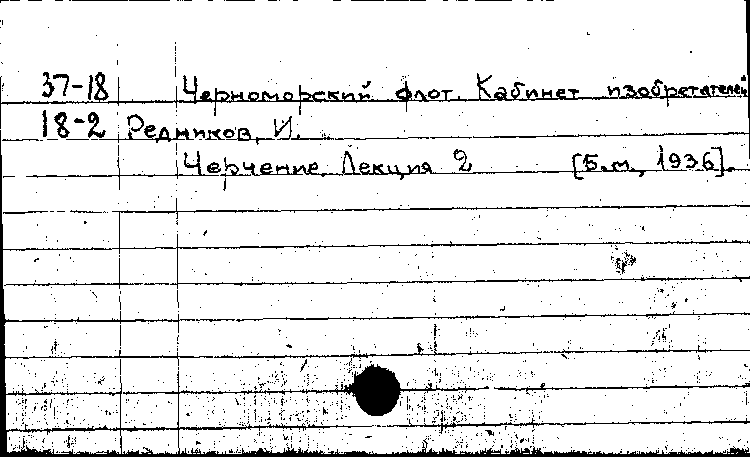 37-18 Черноморский флот. Кабинет изобретателей
18-2 Редников, И.
Черчение. Лекция 2 [Б.м., 1936].